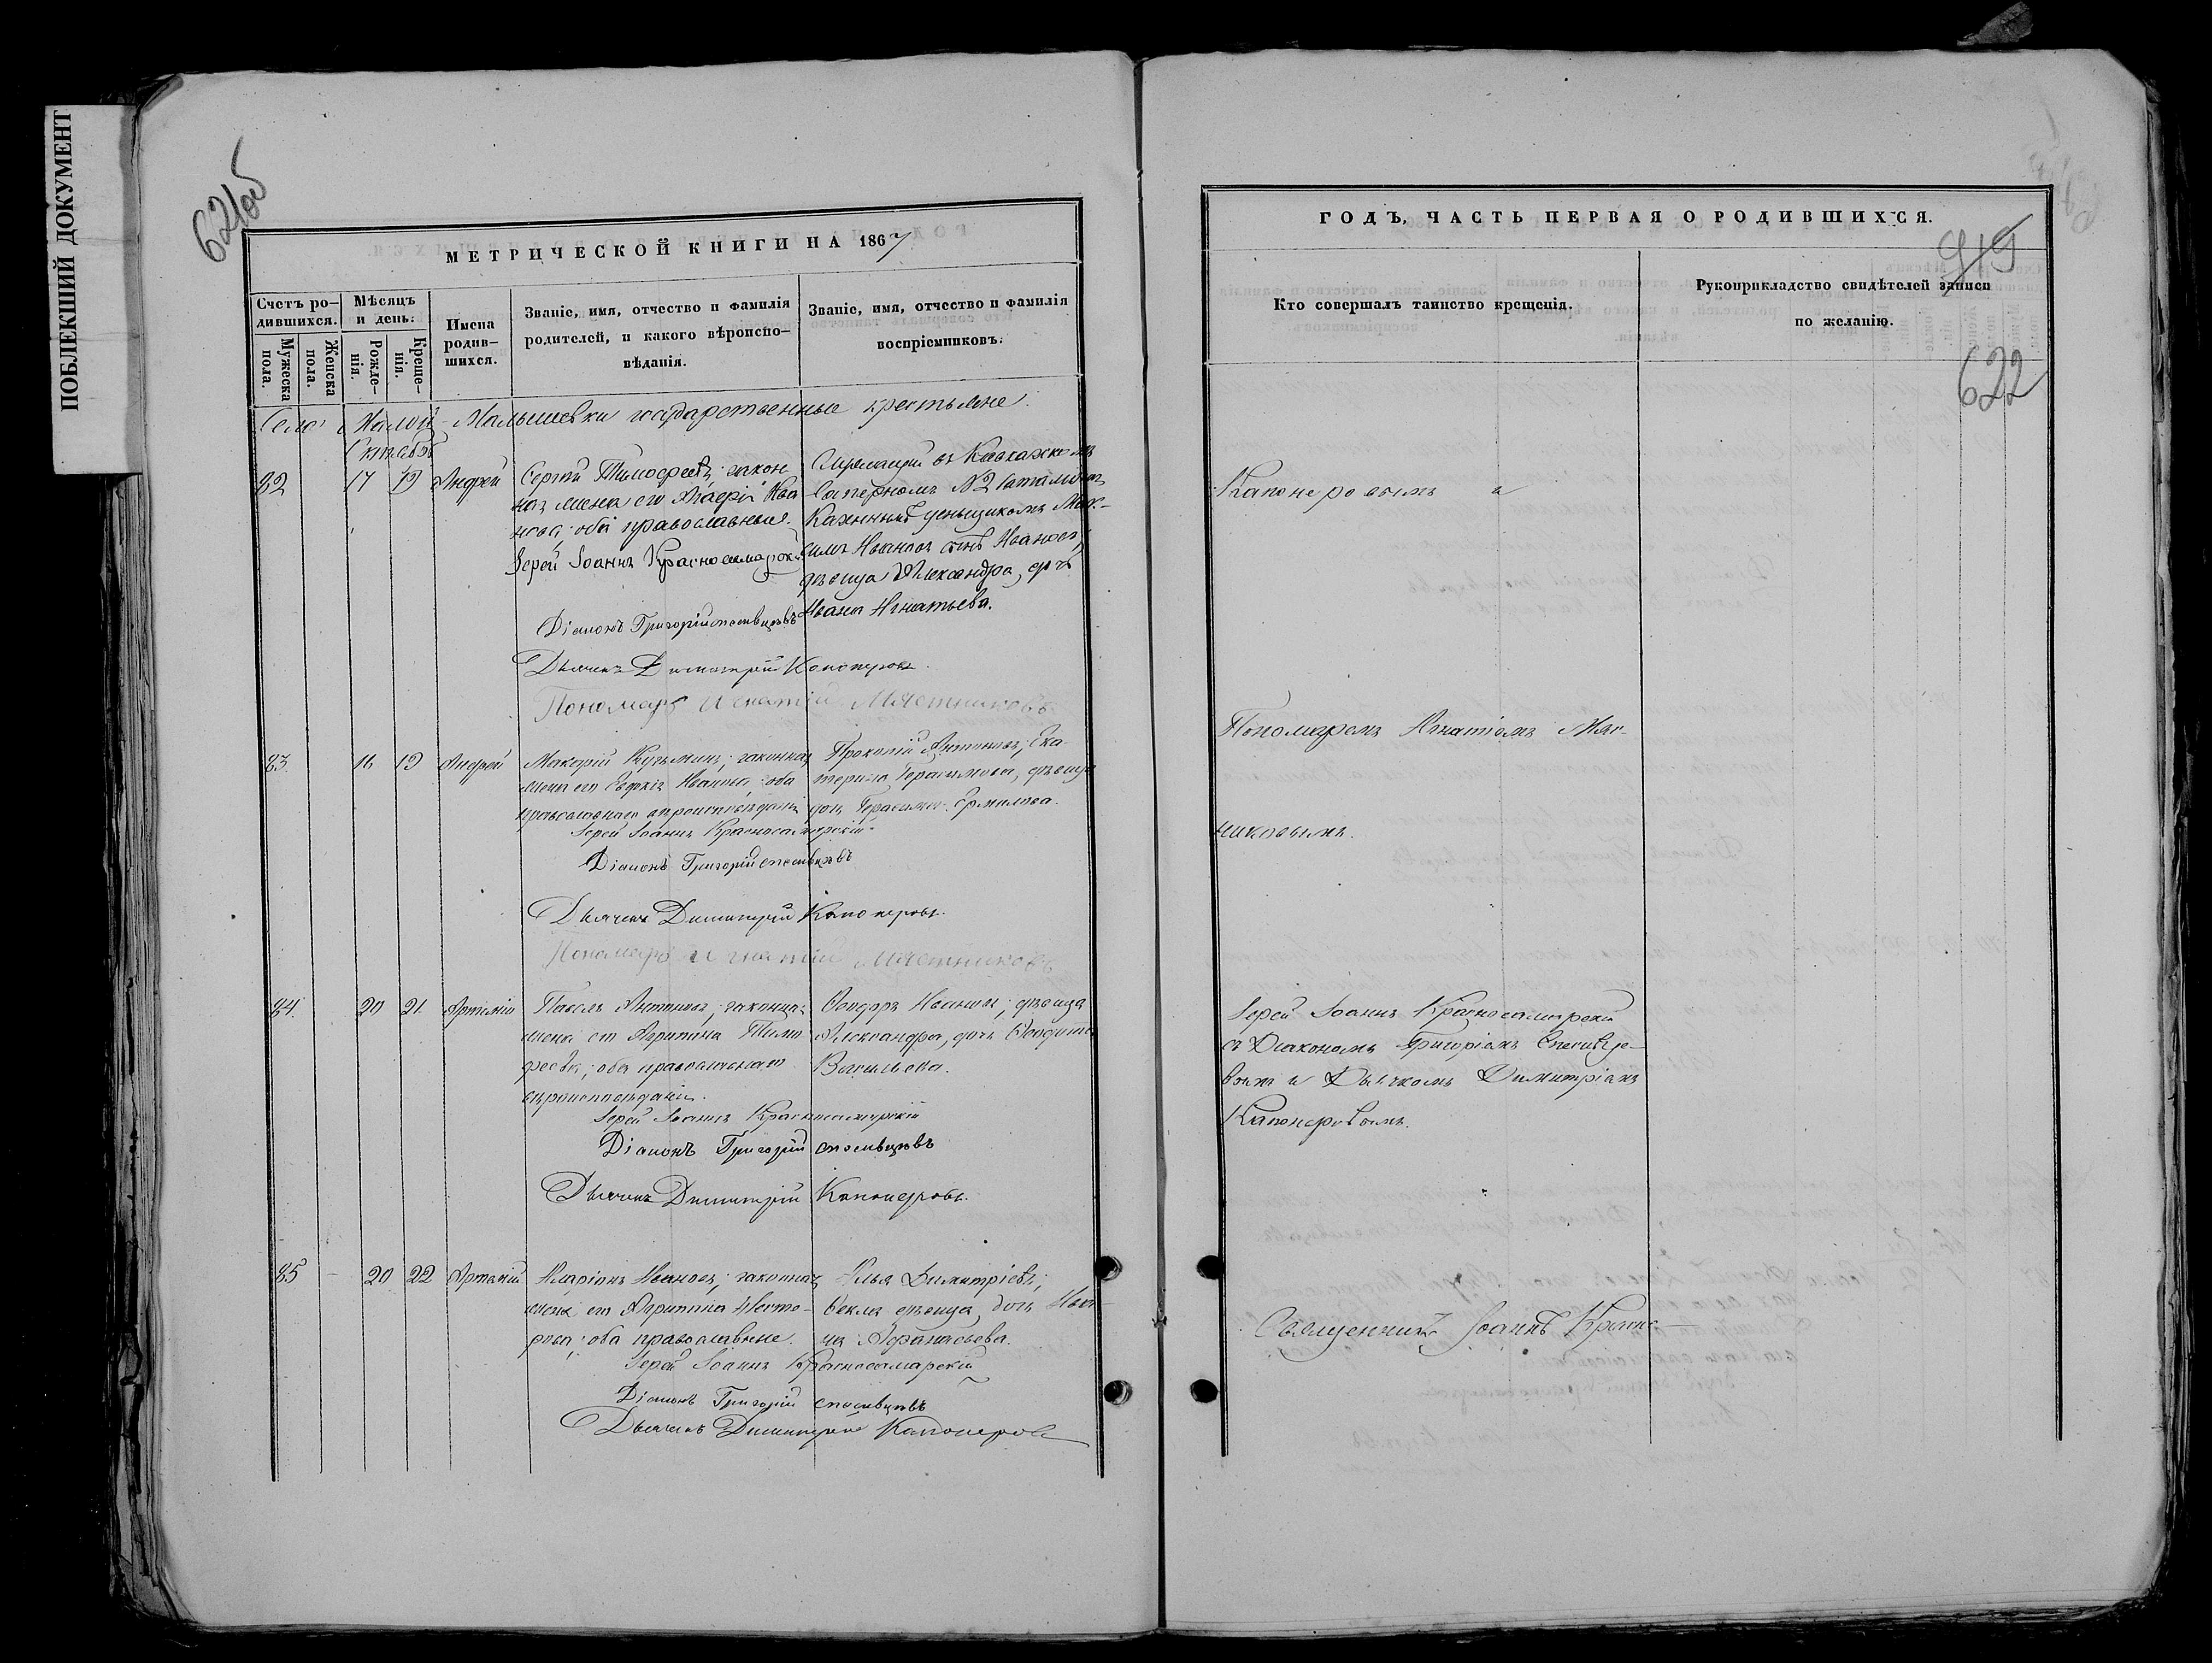 ПОБЛЕКШИЙ ДОКУМЕНТ
621об
МЕТРИЧЕСКОЙ КНИГИ НА 1867
Счетъ ро-
дившихся.
Мужеска
пола.
Женска
пола.
Мѣсяцъ
и день.
Рожде-
нія.
Креще-
нія.
Имена
родив-
шихся.
Званіе, имя, отчество и фамилія
родителей, и какого вѣроиспо-
вѣданія.
Званіе, имя, отчество и фамилія
воспріемниковъ.
Село Малой Малышевки государственные крестьяне.
Октябрь
82 17 19 Андрей
Сергій Тимофеевъ; закон
ная жена его Ива
нова; оба православные.
Іерей Іоаннъ Красносамарск
Служащій въ Кавказкомъ
Саперномъ №2 баталіонѣ
деньщикомъ Мак-
симъ Ивановъ сынъ Ивановъ,
дѣвица Александра, дочь
Ивана Игнатьева.
Діаконъ Григорій Спѣсивцевъ
Дьячекъ Димитрій Капонеровъ.
Пономарь Игнатій Мясниковъ
83. 16 19 Андрей
Макарій Кузьминъ; законная
жена его Евфкія Иванова; оба
православнаго вѣроисповѣданія
Прокопій Антоновъ; Ека-
терина Герасимова, дѣвица
дочь Герасима Ермилова.
Іерей Іоаннъ Красносамарскій
Діаконъ Григорій Спѣсивцевъ
Дьячекъ Димитрій Капонеровъ.
Пономарь Игнатій Мясниковъ
84. 20 21 Артемій
Павелъ Антоновъ; законная
жена его Агрипина Тимо
феева; оба православнаго
вѣроисповѣданія.
Ѳеодоръ Ивановъ; дѣвица
Александра, дочь Ѳеодота
Васильева.
Іерей Іоаннъ Красносамарскій
Діаконъ Григорій Спѣсивцевъ
Дьячекъ Димитрій Капонеровъ.
85 20 22 Артемій
Иларіонъ Ивановъ; законная
жена его Агрипина Несто-
рова; оба православные.
Илья Димитріевъ;
Ѳекла дѣвица, дочь Ива-
на Афанасьева.
Іерей Іоаннъ Красносамарскій
Діаконъ Григорій Спѣсивцевъ
Дьячекъ Димитрій Капонеровъ
ГОДЪ, ЧАСТЬ ПЕРВАЯ О РОДИВШИХСЯ.
919
Кто совершалъ таинство крещенія.
Рукоприкладство свидѣтелей записи
по желанію.
622
Капонеровымъ и
Пономаремъ Игнатіемъ Мяс-
никовымъ.
Іерей Іоаннъ Красносамарскій
съ Діакономъ Григоріемъ Спѣсивце-
вымъ и Дьячкомъ Димитріемъ
Капонеровымъ.
Священникъ Іоаннъ Красно-